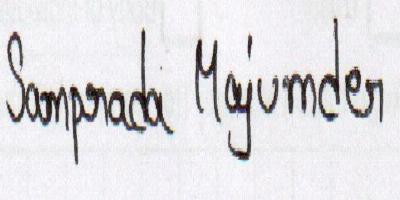 Samprada Majumder